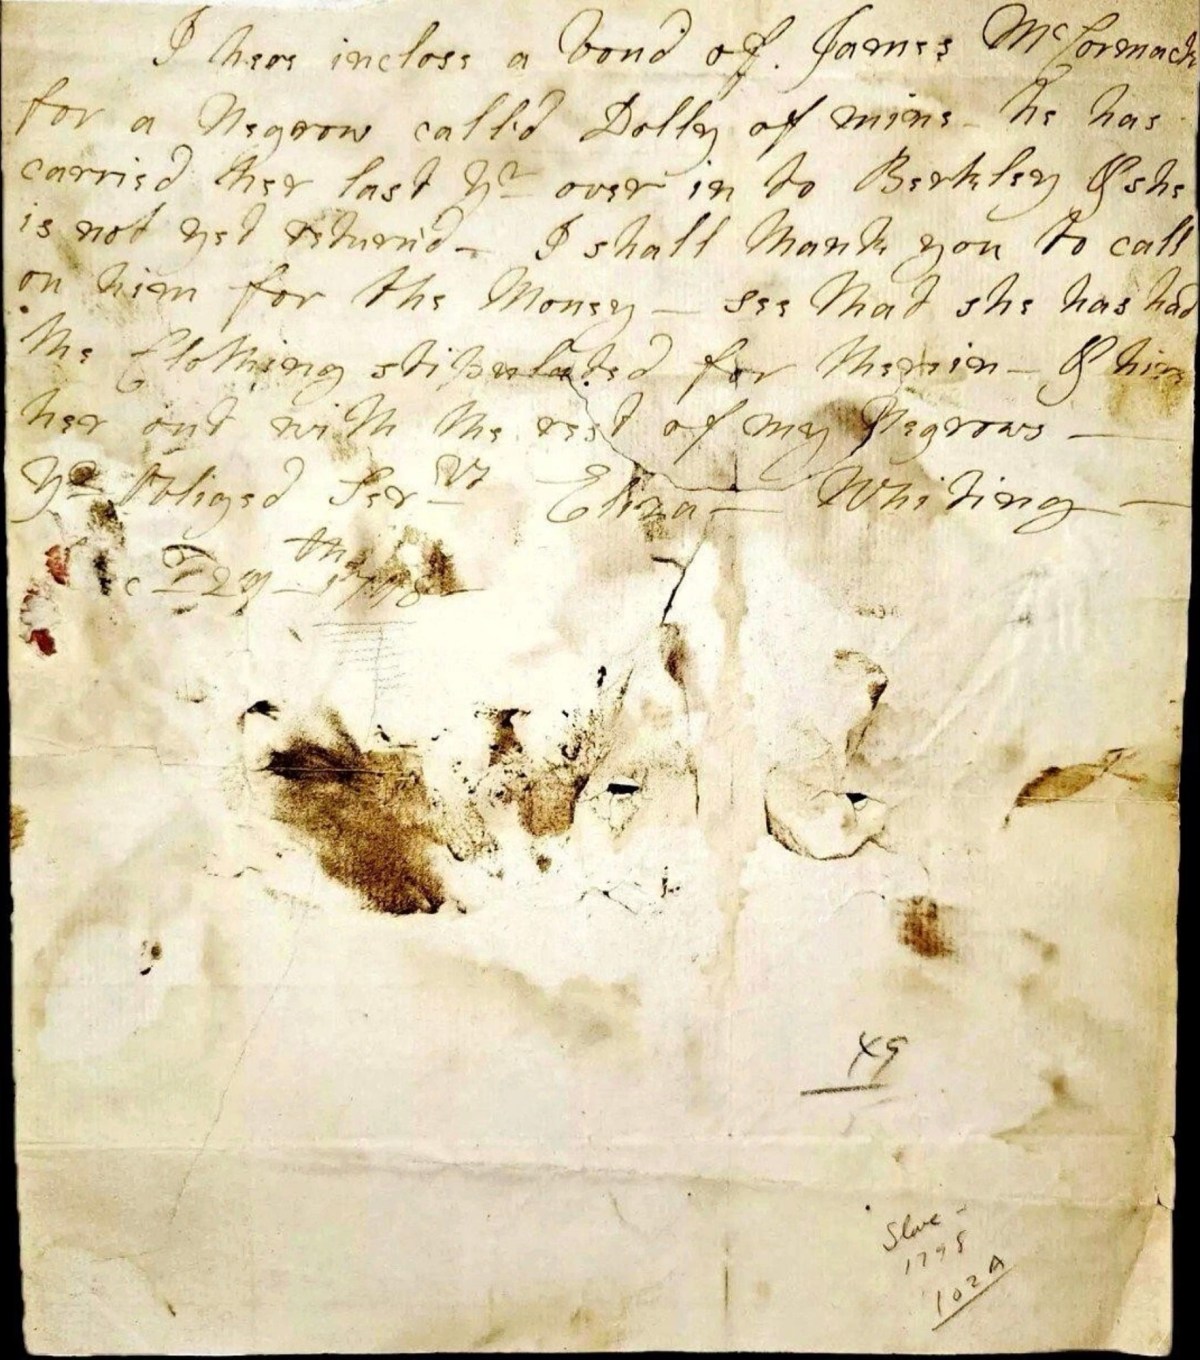 I here inclose a bond of James McCormack
for a Negrow call'd Dolly of mine - he has
carried her last Yr over in to Berkley & she
is not yet returnd - I shall thank you to call
on him for the Money - see that she has had
the Clothing stipulated for therein - & hire
her out with the rest of my Negrows -
Yr Obliged Servt Eliza Whiting -
29th 1798
49
Slave -
1798
102A